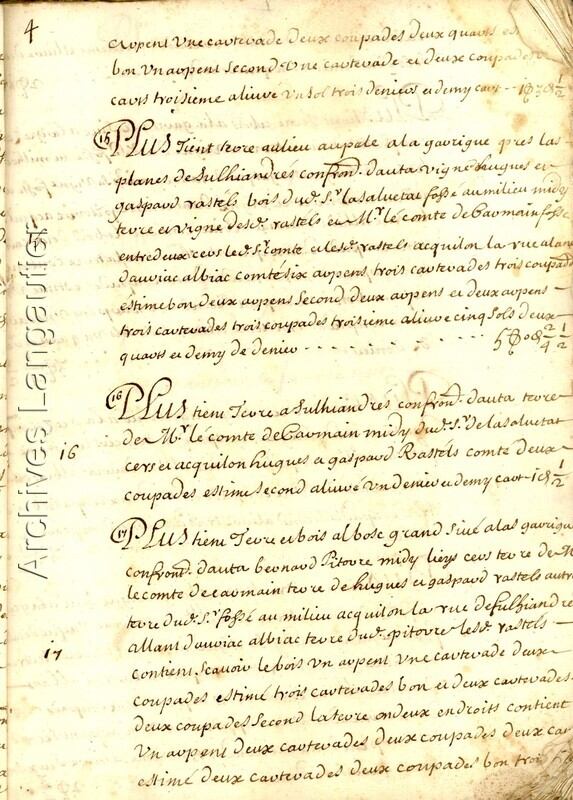 4
arpent Une cartevade deux coupades deux quarts
bon Un arpent Second Une cartevade et deux coupades
carts troisieme alivré Un sol trois deniers et demy cart
15 PLUS Tient terre au lieu apelé a la garrigue pres las
planes de Sulhiandrés confrond. d'auta vigne hugues et
gaspard rastels bois dud. Sr. lasalvetat fossé au milieu midy
terre et vigne desd. rastels et Mr. le comte de Carmain fossé
entre deux cers led. Sr. comte et lesd. rastels acquilon la rue alant
d'auriac albiac comte six arpens trois cartevades trois coupades
estime bon deux arpens Second deux arpens et deux arpens
trois cartevades trois coupades troisieme alivré cinq sols deux
quarts et demy de denier
16 PLUS tient Terre a Sulhiandrés confrond. d'auta terre
de Mr. le comte de Carmain midy dud. Sr. de lasalvetat
16
cers et acquilon hugues et gaspard Rastels comte deux
coupades estimé Second alivré Un denier et demy cart
17 PLUS tient Terre et bois al bosc grand Sive a las garrigues
confrond. d'auta bernard Pitorre midy cers terre de Mr
le comte de carmain terre de hugues et gaspard rastels autre
terre dud. Sr. fossé au milieu acquilon la rue de Sulhiandres
allant d'auriac albiac terre dud. pitorre lesd. rastels
17
contient Scavoir le bois Un arpent Une cartevade deux
coupades estimé trois cartevades bon et deux cartevades
deux coupades Second la terre en deux endroits contient
Un arpent deux cartevades deux coupades deux
estimé deux cartevades deux coupades bon trois
Archives Langautier